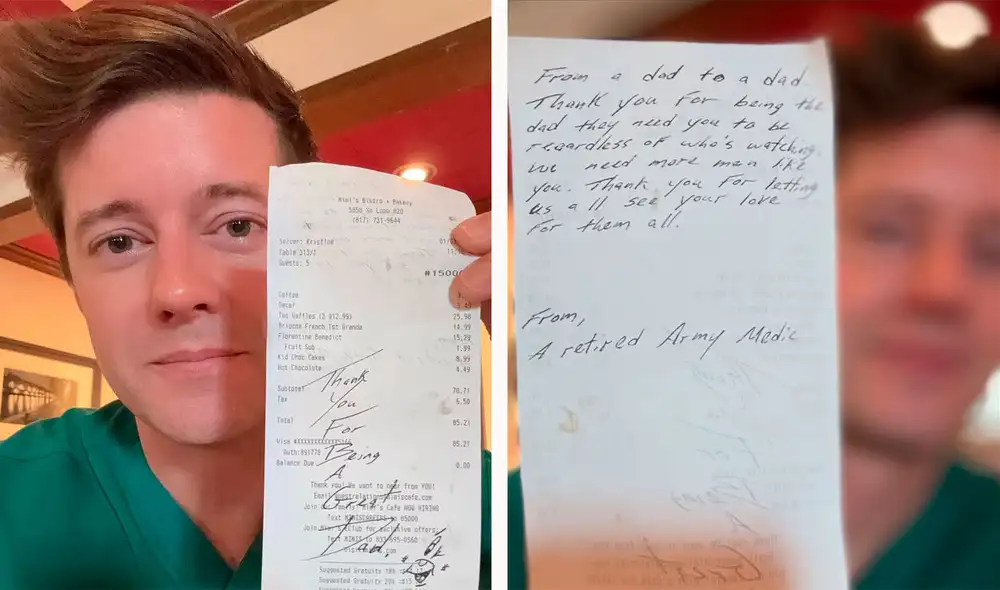 Mimi's Bistro + Bakery
5858 SW Loop 820
(817) 731-9644
Server: Kristine
Table 313/1
Guests: 5
Coffee
Decaf
Two Waffles (2 @12.99) 25.98
Brioche French Tst Grande 14.99
Florentine Benedict 15.29
Fruit Sub 1.99
Kid Choc Cakes 6.99
Hot Chocolate 4.49
Subtotal 78.71
Tax 6.50
Total 85.21
Visa 85.21
Auth:
Balance Due 0.00
Thank
You
For
Being
A
Great
Dad.
Thank you! We want to hear from YOU!
Email
Cafe NOW HIRING
to 85000
Club for exclusive offers:
Text MIMIS to
.com
Suggested Gratuity 18%
Suggested Gratuity 20%
From a dad to a dad.
Thank you For being the
dad they need you to be
regardless of who's watching.
we need more men like
you. Thank you For letting
us all see your love
For them all.
From,
A retired Army Medic